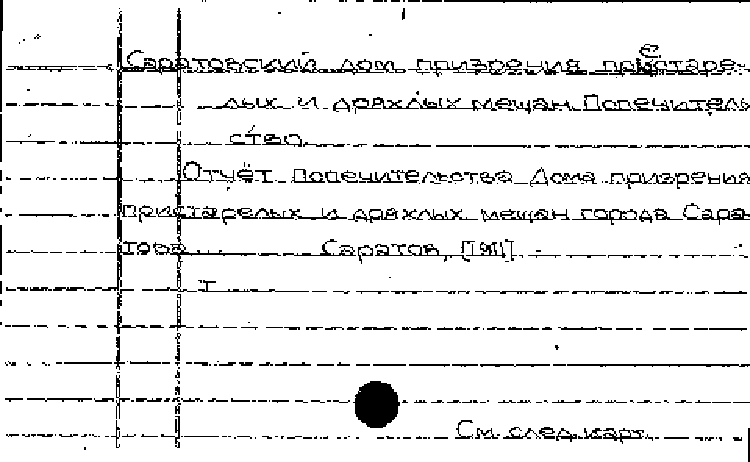 Саратовский дом призрения престаре-
лых и дряхлых мещан. Попечитель-
ство.
Отчёт Попечительства Дома призрения
пристарелых и дряхлых мещан города Сара-
това. Саратов, [1911]
Т
См. след. карт.